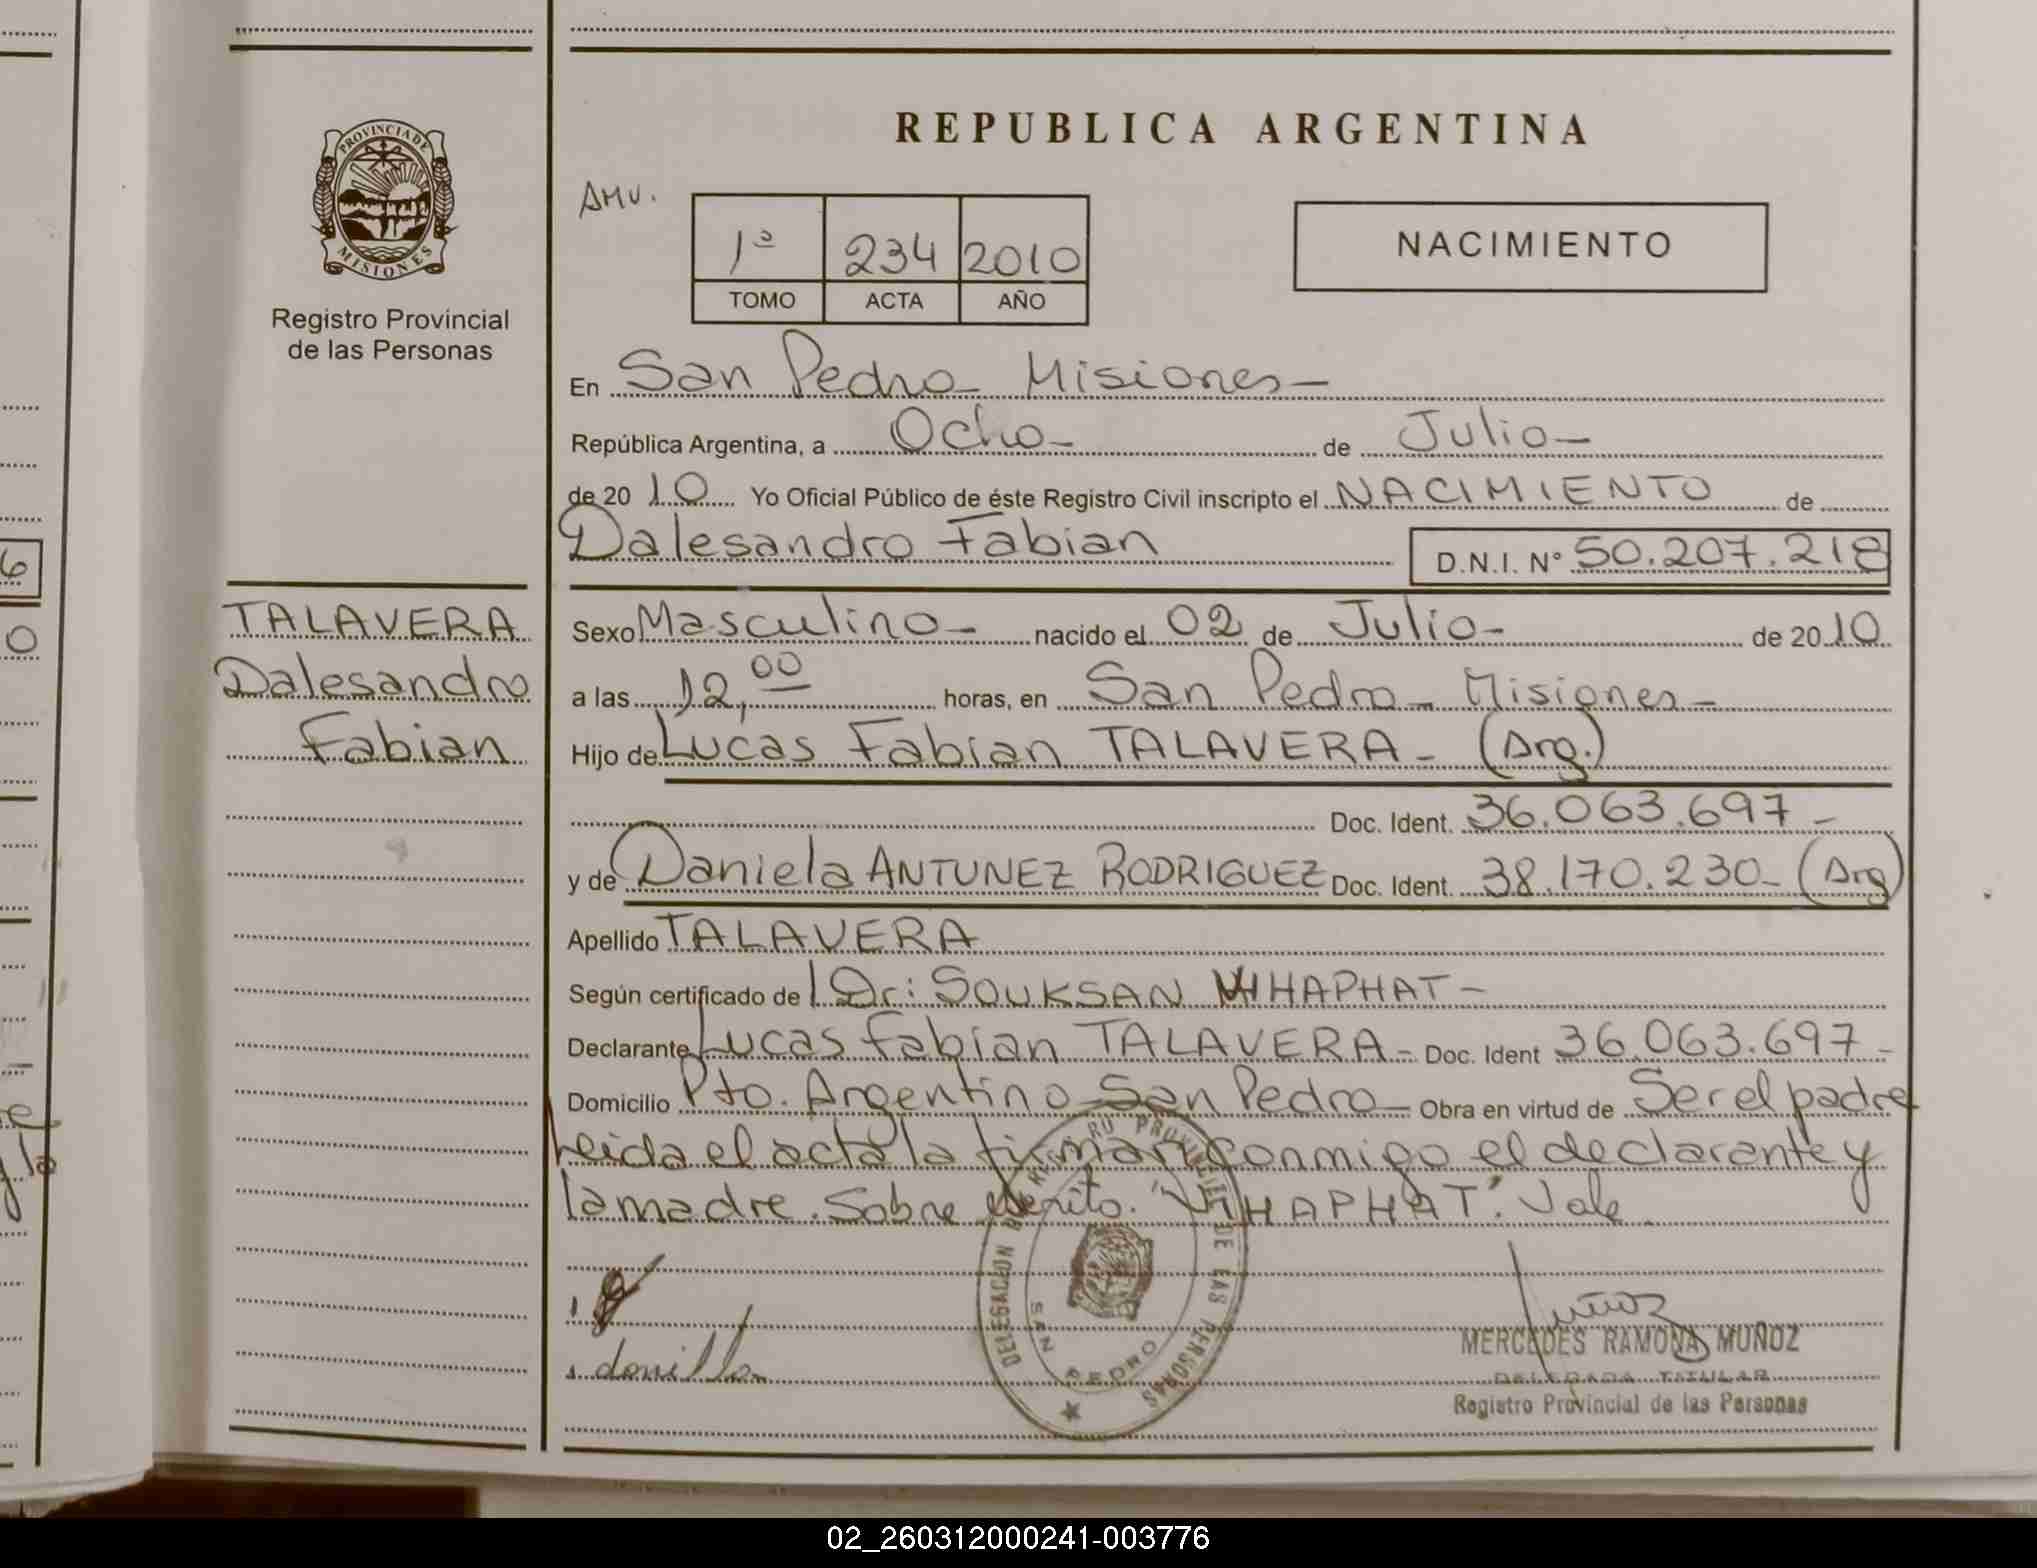 REPUBLICA ARGENTINA
PROVINCIA DE
MISIONES
Registro Provincial
de las Personas
AMU.
1ª 234 2010
TOMO ACTA AÑO
NACIMIENTO
En San Pedro - Misiones -
República Argentina, a Ocho - de Julio -
de 20 10 Yo Oficial Público de éste Registro Civil inscripto el NACIMIENTO de
Dalesandro Fabian D.N.I. Nº 50.207.218
TALAVERA
Dalesandro
Fabian
Sexo Masculino - nacido el 02 de Julio - de 20 10
a las 12,00 horas, en San Pedro - Misiones -
Hijo de Lucas Fabian TALAVERA - (Arg.)
Doc. Ident. 36.063.697 -
y de Daniela ANTUNEZ RODRIGUEZ Doc. Ident. 38.170.230 - (Arg)
Apellido TALAVERA
Según certificado de Dr: SOUKSAN VIHAPHAT -
Declarante Lucas Fabian TALAVERA - Doc. Ident 36.063.697 -
Domicilio Pto. Argentino San Pedro - Obra en virtud de Ser el padre
Leida el acta la firman conmigo el declarante y
la madre. Sobre escrito. "VIHAPHAT". Vale
DELEGACION REGISTRO PROVINCIAL DE LAS PERSONAS
SAN PEDRO
Muñoz
MERCEDES RAMONA MUÑOZ
DELEGADA TITULAR
Registro Provincial de las Personas
6
0
02_260312000241-003776